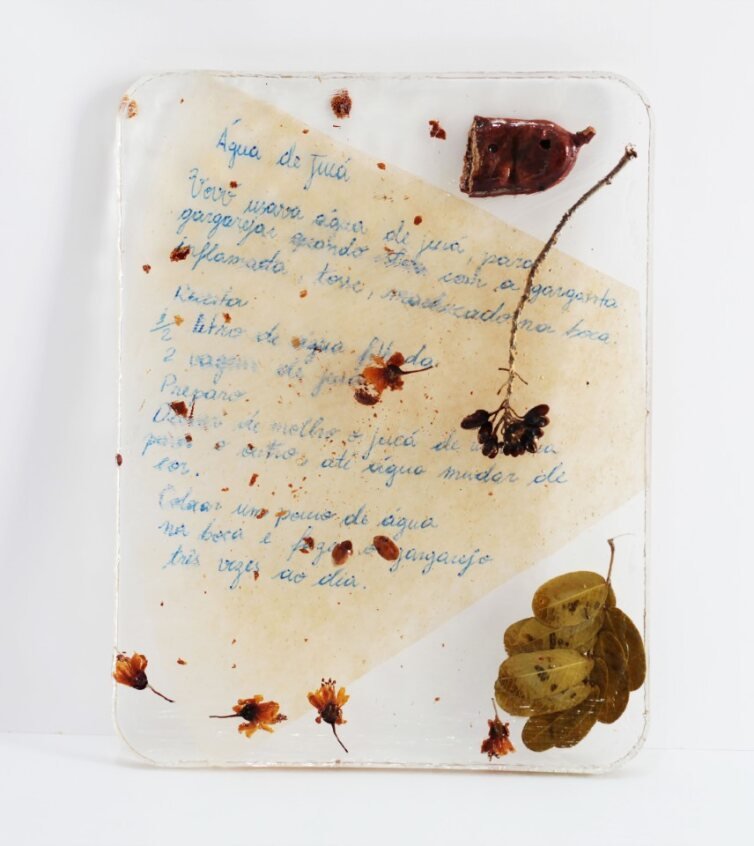 Água de jucá
Vovó usava água de jucá, para
gargarejar quando com a garganta
inflamada, tosse, machucado na boca.
Receita
1/2 litro de água
2 vagens de jucá
Preparo.
Deixar de molho o jucá de
para o outro, até água mudar de
cor.
Colocar um pouco de água
na boca e faça o gargarejo
três vezes ao dia.